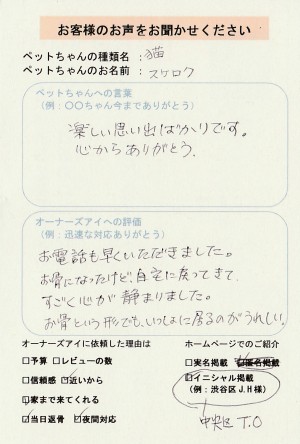 お客様のお声をお聞かせください
ペットちゃんの種類名：猫
ペットちゃんのお名前：スケロク
ペットちゃんへの言葉
（例：〇〇ちゃん今までありがとう）
楽しい思い出ばかりです。
心からありがとう.
オーナーズアイへの評価
（例：迅速な対応ありがとう）
お電話も早くいただきました。
お骨になったけど、自宅に戻ってきて、
すごく心が静まりました。
お骨という形でも、いっしょに居るのがうれしい。
オーナーズアイに依頼した理由は
□予算 □レビューの数
□信頼感 ☑近いから
☑家まで来てくれる
☑当日返骨 ☑夜間対応
ホームページでのご紹介
□実名掲載 ☑匿名掲載
☑イニシャル掲載
（例：渋谷区 J.H 様）
中央区 T.O